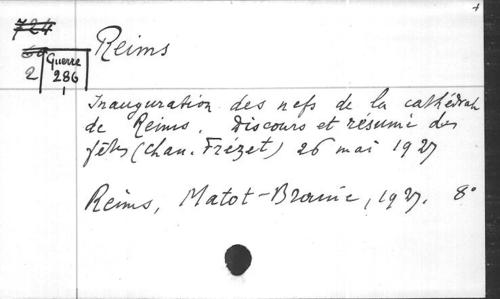 724
60
2
Guerre
286
Reims
Inauguration des nefs de la cathédrale
de Reims. Discours et résumé des
fêtes (chan. Frézet) 26 mai 1927
Reims, Matot-Braine, 1927. 8°